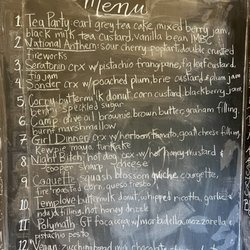 Menu
1. Tea Party: earl grey tea cake, mixed berry jam,
black milk tea custard, vanilla bean
2. National Anthem: sour cherry poptart, double crusted
fireworks
3. Seratonin crx w/ pistachio franypane, fig leaf custard,
fig jam
4. Sonder crx w/ poached plum, brie custard, & plum jam
5. Corry buttermilk donut, corn custard, blackberry jam
berry speckled sugar
6. Camp olive oil brownie, brown butter, graham filling
burnt marshmallow
7. Girl Dinner: crx w/ tomato, goat cheese filling
Kewpie mayo, furikake
8. Night Bitch hot dog crx w/ honey mustard &
cheese
9. Coquette squash blossom quiche courgette,
fire roasted corn, queso fresco
10. Templove buttermilk donut, whipped ricotta, garlic &
nduja filling, hot honey drizzle
11. Polymath GF focaccia w/ mortadella, mozzarella
12. Vegan zucchini chocolate